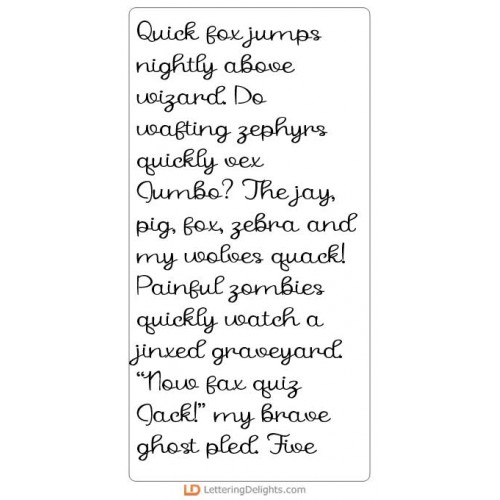 Quick fox jumps
nightly above
wizard. Do
wafting zephyrs
quickly vex
Jumbo? The jay,
pig, fox, zebra and
my wolves quack!
Painful zombies
quickly watch a
jinxed graveyard.
“Now fax quiz
Jack!” my brave
ghost pled. Five
LD LetteringDelights.com